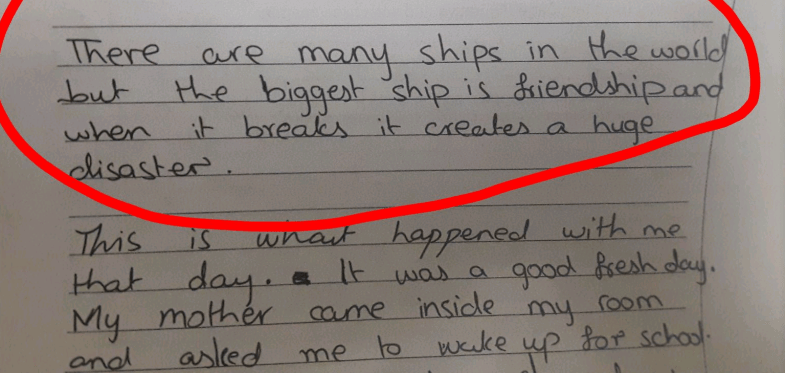 There are many ships in the world
but the biggest ship is friendship and
when it breaks it creates a huge
disaster.
This is what happened with me
that day. It was a good fresh day.
My mother came inside my room
and asked me to wake up for school.